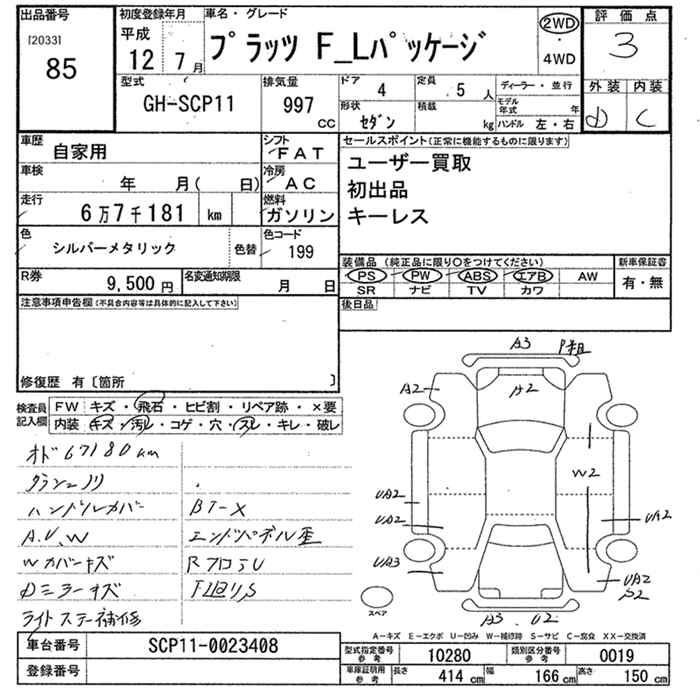 出品番号
[2033]
85
初度登録年月
平成
12年 7月
車名・グレード
プラッツ F_Lパッケージ
2WD
・
4WD
評価点
3
型式
GH-SCP11
排気量
997
cc
ドア
4
定員
5人
形状
セダン
積載
kg
ディーラー・並行
モデル年式 年
ハンドル 左・右
外装 内装
D C
車歴
自家用
シフト
FAT
セールスポイント(正常に機能するものに限ります)
ユーザー買取
初出品
キーレス
車検
年 月( 日)
冷房
AC
走行
6万7千181 km
燃料
ガソリン
色
シルバーメタリック
色替
色コード
199
装備品 (純正品に限り○をつけてください)
新車保証書
PS PW ABS エアB AW
SR ナビ TV カワ
有・無
R券
9,500円
名変通知期限
月 日
後日品
注意事項申告欄(不具合内容等は具体的に記入して下さい)
修復歴 有〔箇所 〕
検査員
記入欄
FW キズ・飛石・ヒビ割・リペア跡・×要
内装 キズ・汚レ・コゲ・穴・スレ・キレ・破レ
オド67180km
ハンドルカバー BT-X
A.U.W エンドパネル歪
Wカバーキズ
Dミラーキズ
ライトステー補修
A3
A2
A2
W2
UA2
UA2
UA2
UA3
UA2
S2
A3 U2
スペア
A-キズ E-エクボ U-凹み W-補修跡 S-サビ C-腐食 XX-交換済
車台番号
SCP11-0023408
登録番号
型式指定番号
参考
10280
類別区分番号
参考
0019
車庫証明用
参考
長さ
414 cm
幅
166 cm
高さ
150 cm